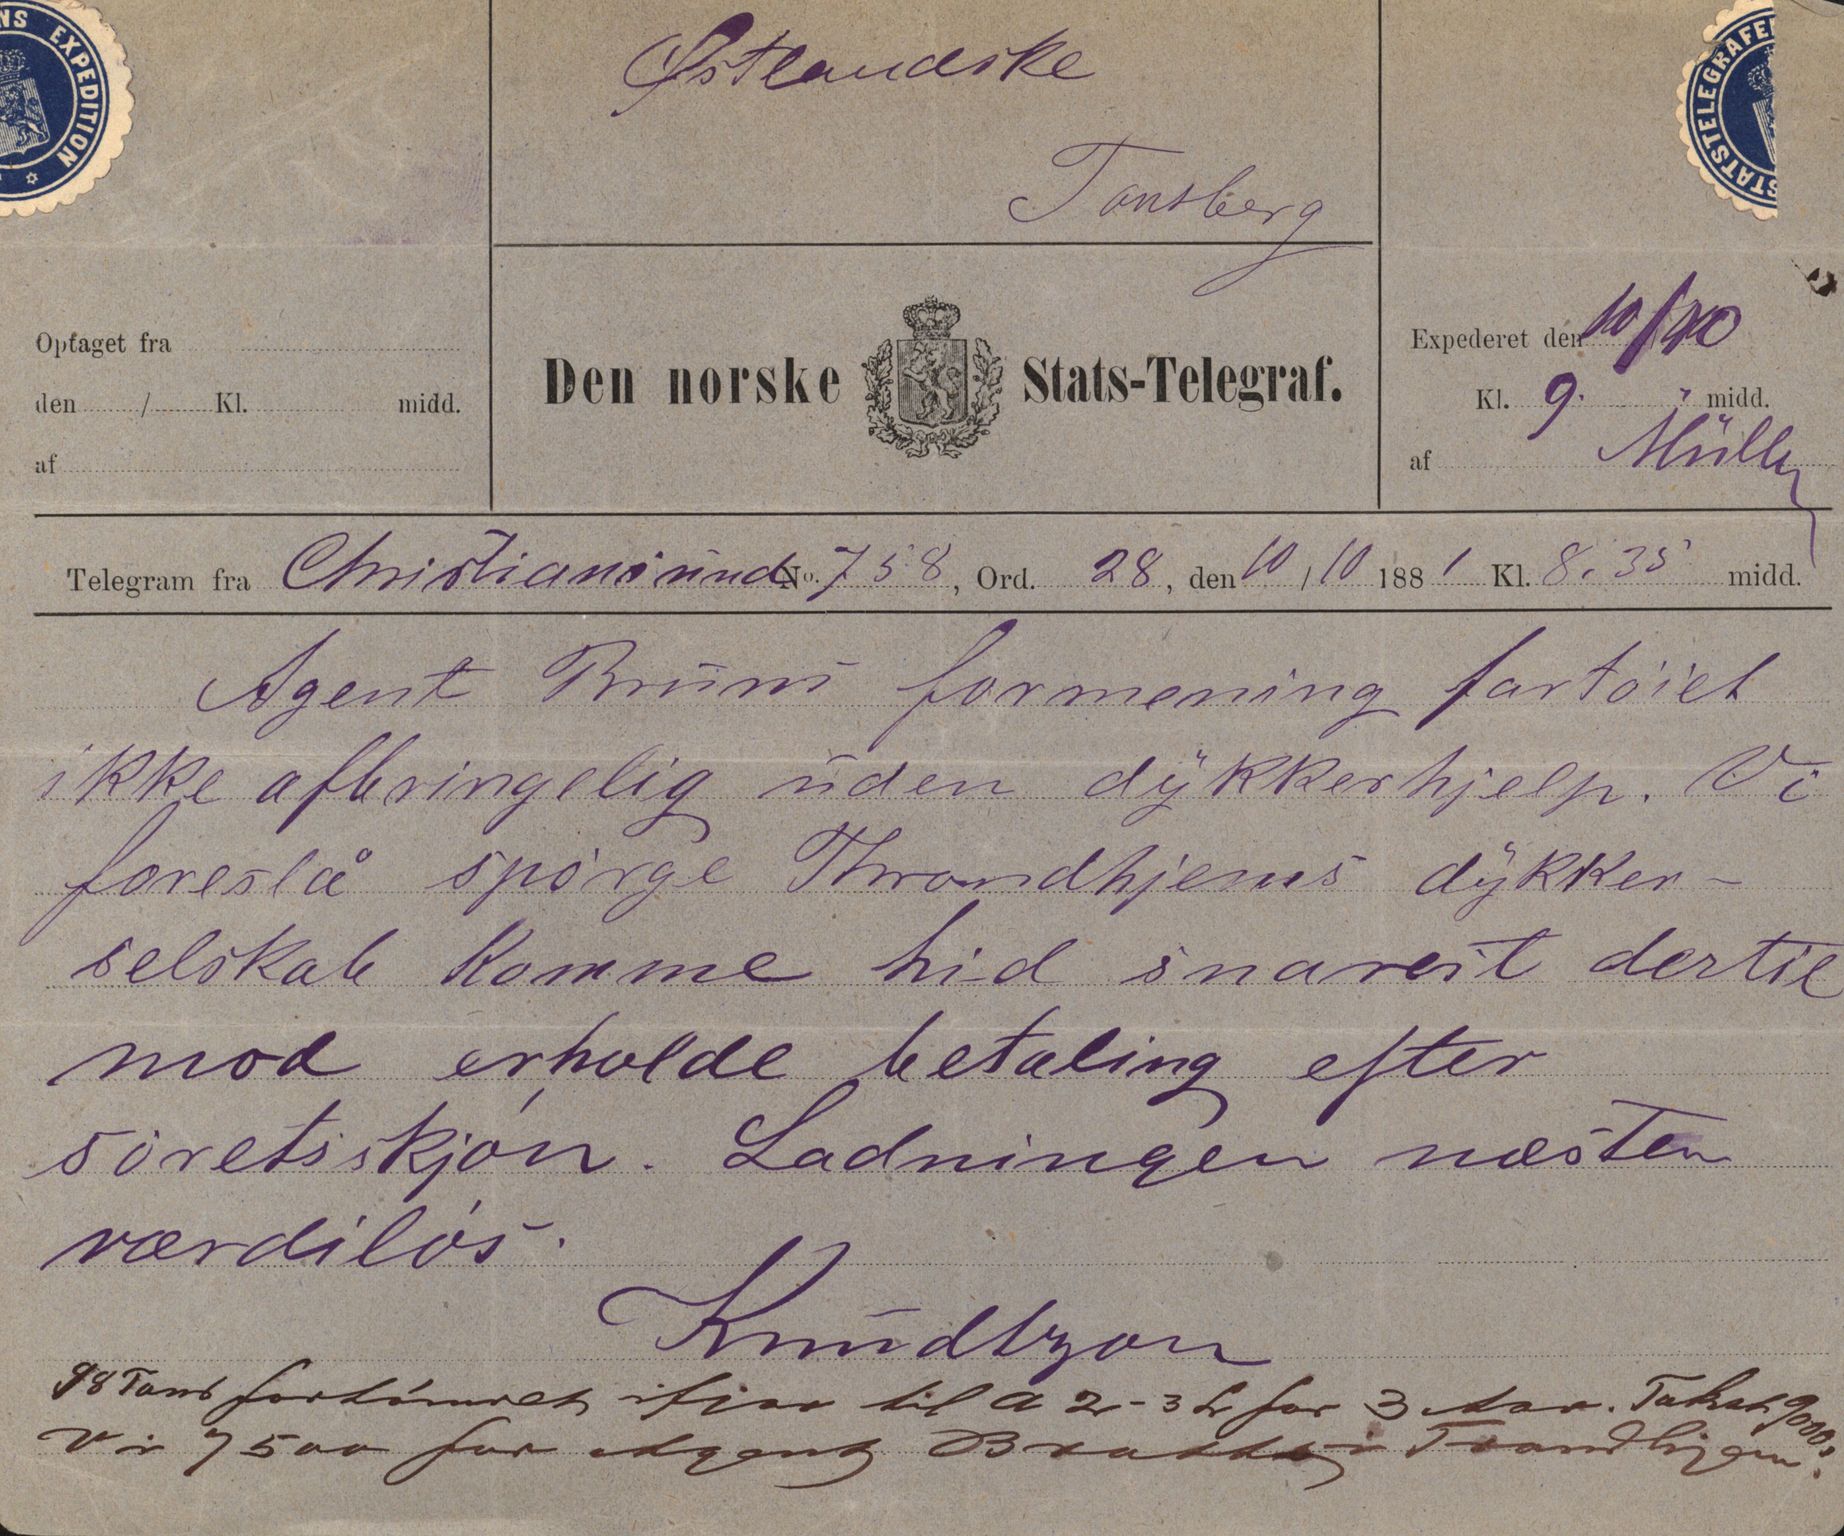 NS EXPEDITION
STATSTELEGRAFE
Østlandske
Tonsberg
Optaget fra
den / Kl. midd.
af
Den norske Stats-Telegraf.
Expederet den 10/10
Kl. 9. midd.
af Müller
Telegram fra Christiansund No. 758, Ord. 28, den 10/10 1881 Kl. 8.35 midd.
Agent Bruns formening fartöiet
ikke afbringelig uden dykkerhjelp. Vi
foreslå spörge Throndhjems dykker-
selskab komme hid snarest dertil
mod erholde betaling efter
söretsskjön. Ladningen næsten
værdilös.
Knudtzon
98 Tons fortömret ifjor til A 2 - 3 for 3 Aar. Takst 9000.
Vi 7500 for Agent i Trondhjem.